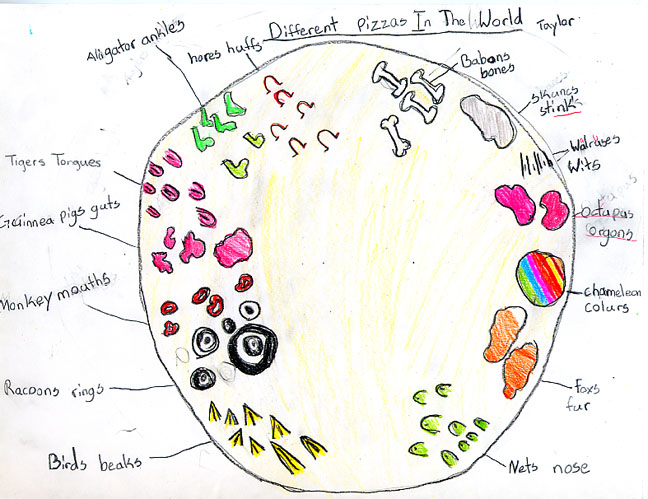 Different Pizzas In The World
Taylor
Alligator ankles
hores huffs
Babons
bones
skuncs
stink
Walruses
Wits
Octapus
orgons
chameleon
colurs
Foxs
fur
Nets nose
Tigers Tongues
Guinnea pigs guts
Monkey mouths
Racoons rings
Birds beaks